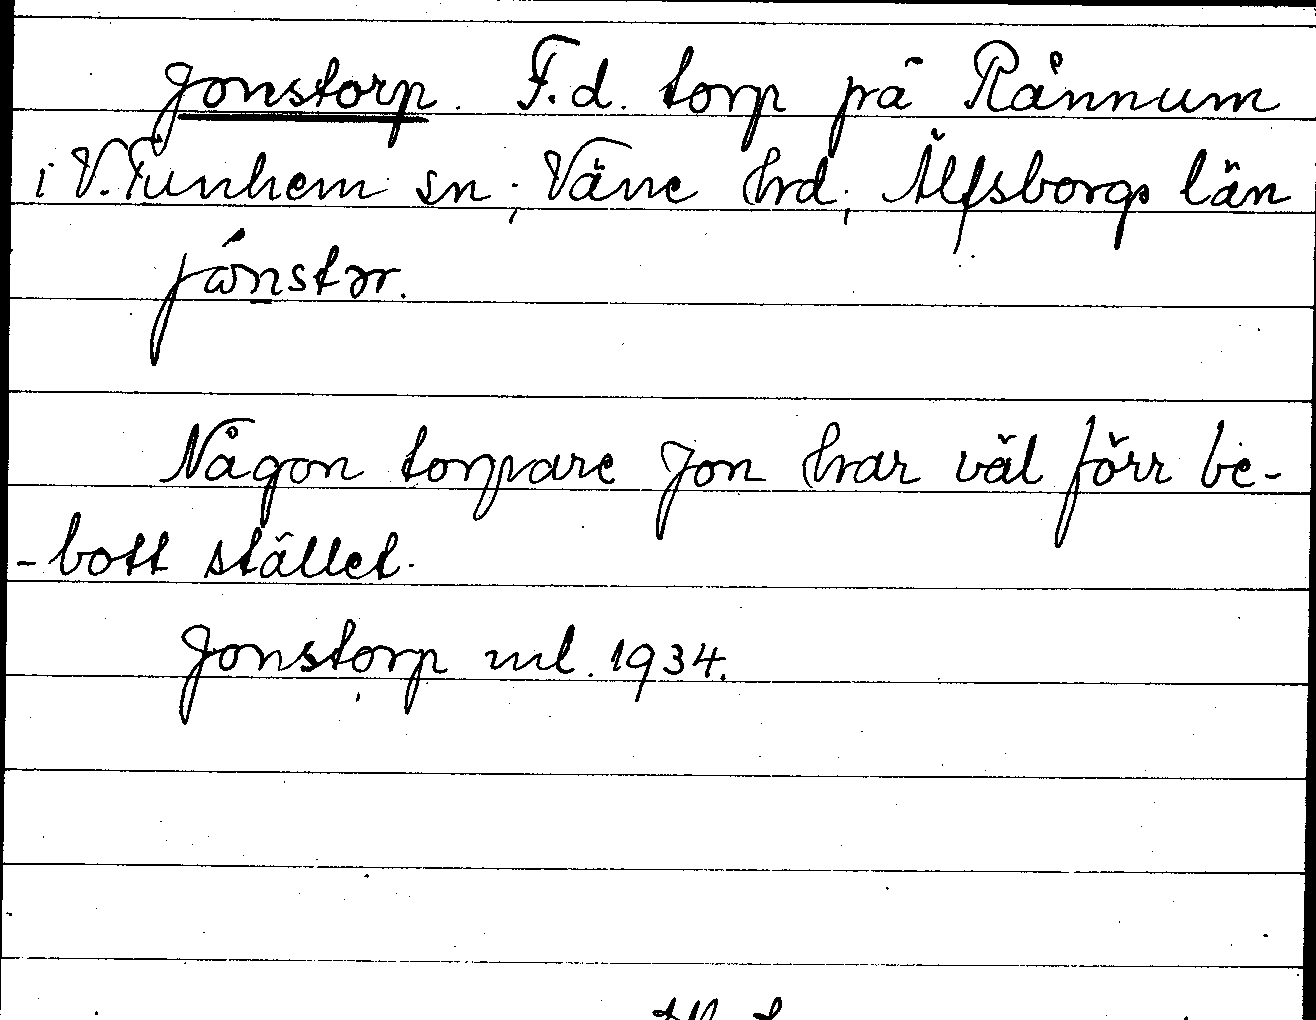 Jonstorp. F.d. torp på Rånnum
i V. Tunhem sn; Väne hrd; Älfsborgs län
Någon torpare Jon har väl förr be-
-bott stället.
Jonstorp ml. 1934.